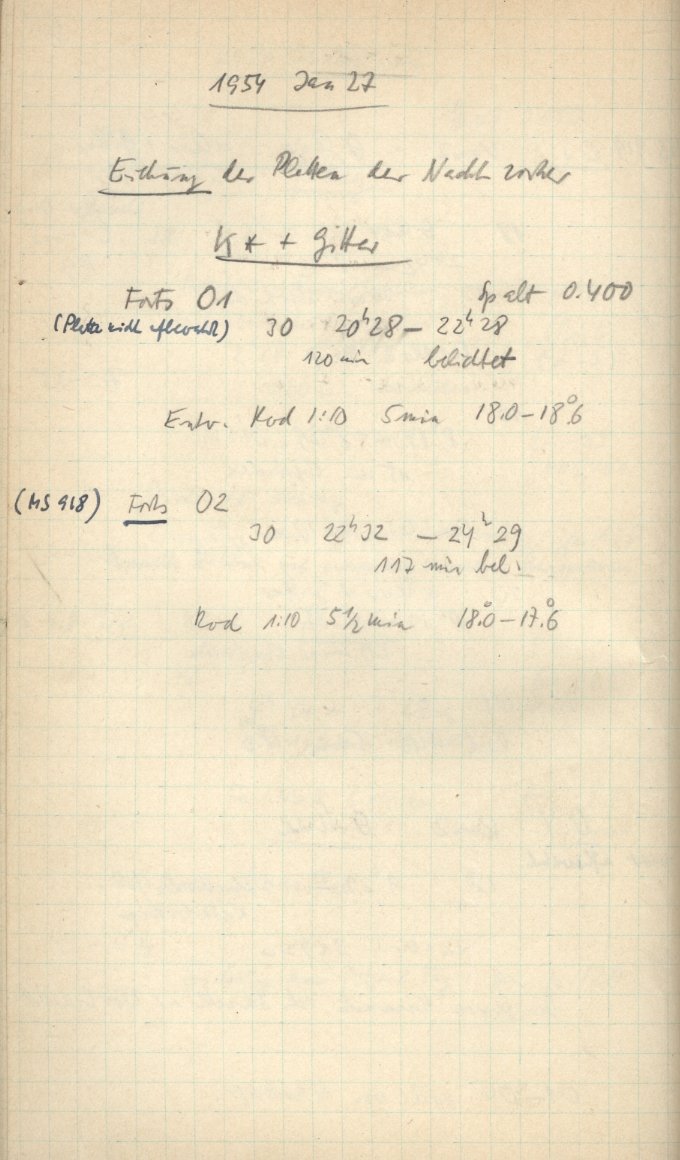 1954 Jan 27
Eichung der Platten der Nacht vorher
K * + Gitter
Forts 01 Spalt 0.400
(Platte nicht aufbewahrt) 30 20h28 – 22h28
120 min belichtet
Entw. Rod 1:10 5min 18.0 – 18°.6
(MS 968) Forts 02
30 22h32 – 24h29
117 min bel.
Rod 1:10 5 1/2 min 18°.0 – 17°.6